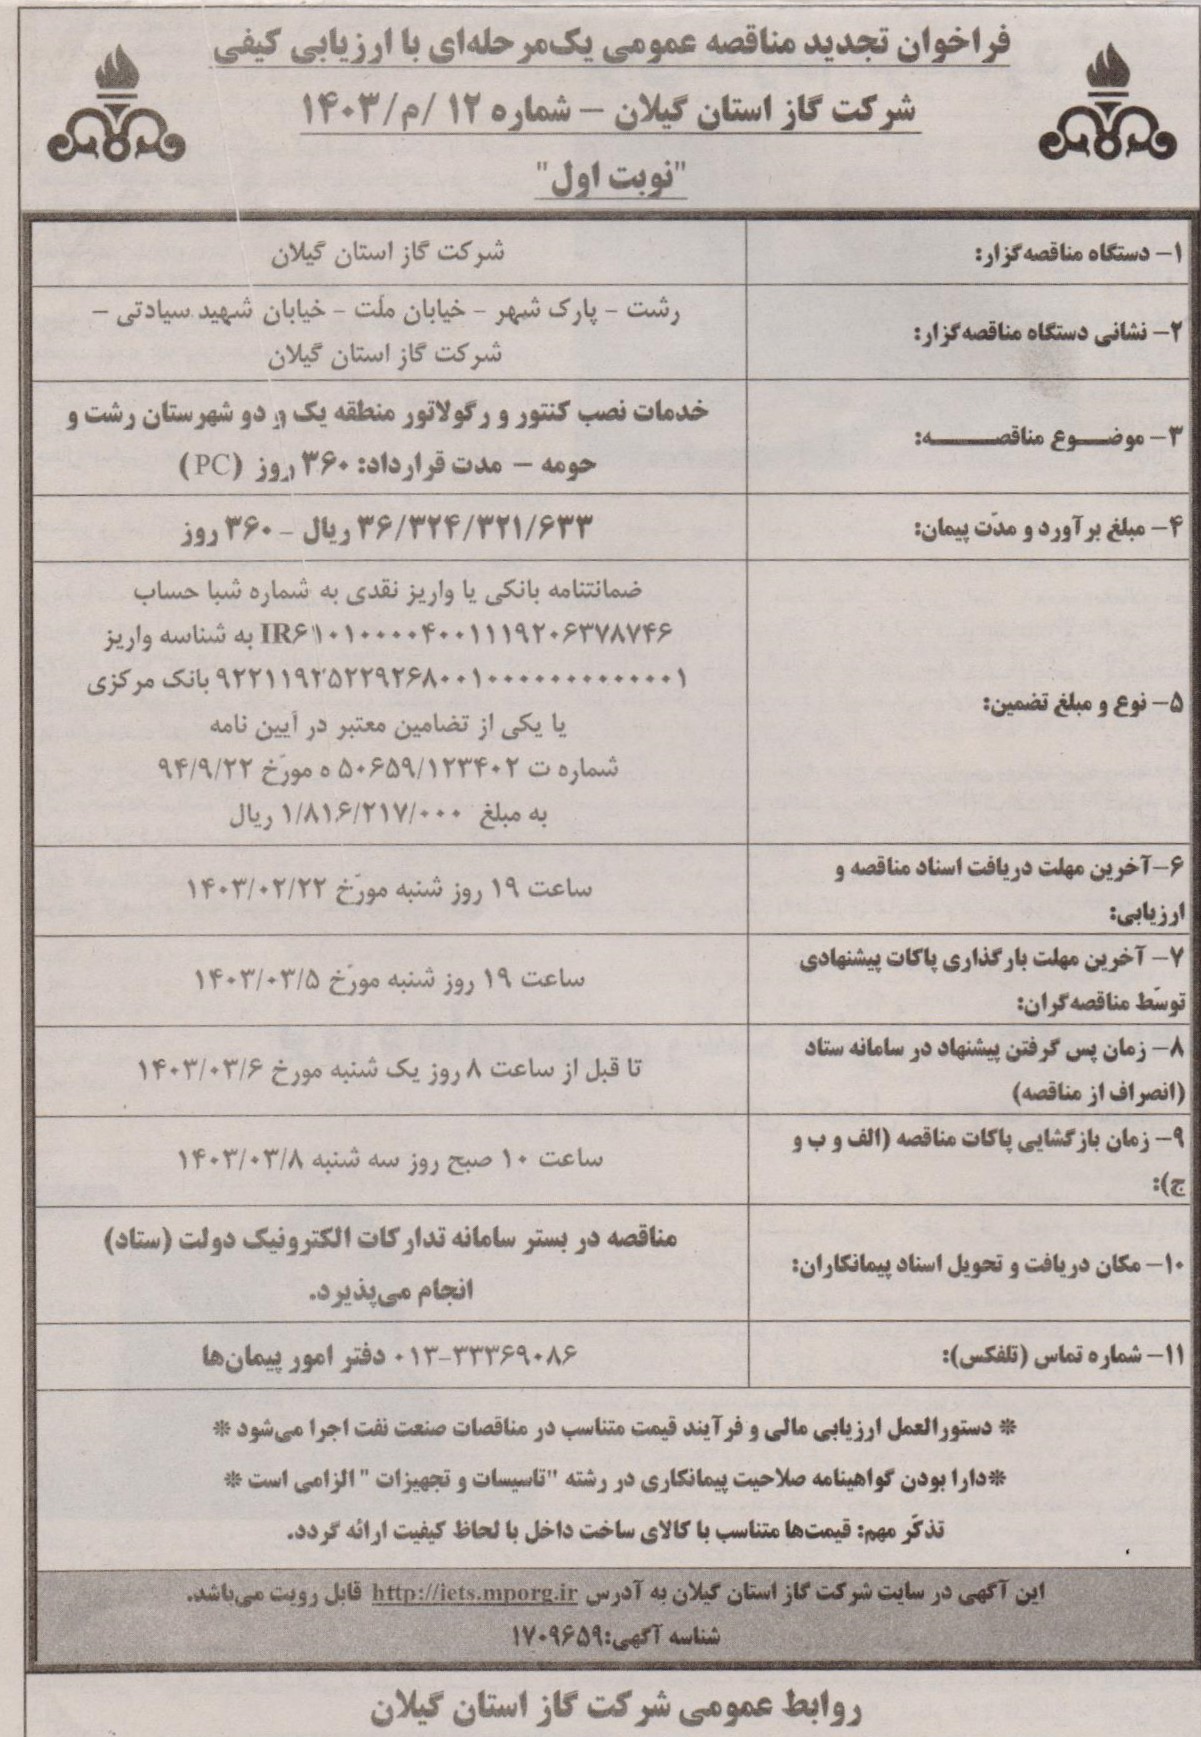 فراخوان تجدید مناقصه عمومی یک‌مرحله‌ای با ارزیابی کیفی
شرکت گاز استان گیلان – شماره ۱۲ /م/۱۴۰۳
"نوبت اول"
۱– دستگاه مناقصه‌گزار:
شرکت گاز استان گیلان
۲– نشانی دستگاه مناقصه‌گزار:
رشت - پارک شهر - خیابان ملّت - خیابان شهید سیادتی –
شرکت گاز استان گیلان
۳– موضـــوع مناقصـــــــه:
خدمات نصب کنتور و رگولاتور منطقه یک و دو شهرستان رشت و
حومه – مدت قرارداد: ۳۶۰ روز (PC)
۴– مبلغ برآورد و مدّت پیمان:
۳۶/۳۲۴/۳۲۱/۶۳۳ ریال – ۳۶۰ روز
۵– نوع و مبلغ تضمین:
ضمانتنامه بانکی یا واریز نقدی به شماره شبا حساب
IR۶۱۰۱۰۰۰۰۴۰۰۱۱۱۹۲۰۶۳۷۸۷۴۶ به شناسه واریز
۹۲۲۱۱۹۲۵۲۲۹۲۶۸۰۰۱۰۰۰۰۰۰۰۰۰۰۰۰۱ بانک مرکزی
یا یکی از تضامین معتبر در آیین نامه
شماره ت ۵۰۶۵۹/۱۲۳۴۰۲ ه مورّخ ۹۴/۹/۲۲
به مبلغ ۱/۸۱۶/۲۱۷/۰۰۰ ریال
۶–آخرین مهلت دریافت اسناد مناقصه و
ارزیابی:
ساعت ۱۹ روز شنبه مورّخ ۱۴۰۳/۰۲/۲۲
۷– آخرین مهلت بارگذاری پاکات پیشنهادی
توسّط مناقصه‌گران:
ساعت ۱۹ روز شنبه مورّخ ۱۴۰۳/۰۳/۵
۸– زمان پس گرفتن پیشنهاد در سامانه ستاد
(انصراف از مناقصه)
تا قبل از ساعت ۸ روز یک شنبه مورخ ۱۴۰۳/۰۳/۶
۹– زمان بازگشایی پاکات مناقصه (الف و ب و
ج):
ساعت ۱۰ صبح روز سه شنبه ۱۴۰۳/۰۳/۸
۱۰– مکان دریافت و تحویل اسناد پیمانکاران:
مناقصه در بستر سامانه تدارکات الکترونیک دولت (ستاد)
انجام می‌پذیرد.
۱۱– شماره تماس (تلفکس):
۰۱۳-۳۳۳۶۹۰۸۶ دفتر امور پیمان‌ها
* دستورالعمل ارزیابی مالی و فرآیند قیمت متناسب در مناقصات صنعت نفت اجرا می‌شود *
*دارا بودن گواهینامه صلاحیت پیمانکاری در رشته "تاسیسات و تجهیزات" الزامی است *
تذکّر مهم: قیمت‌ها متناسب با کالای ساخت داخل با لحاظ کیفیت ارائه گردد.
این آگهی در سایت شرکت گاز استان گیلان به آدرس http://iets.mporg.ir قابل رویت می‌باشد.
شناسه آگهی:۱۷۰۹۶۵۹
روابط عمومی شرکت گاز استان گیلان